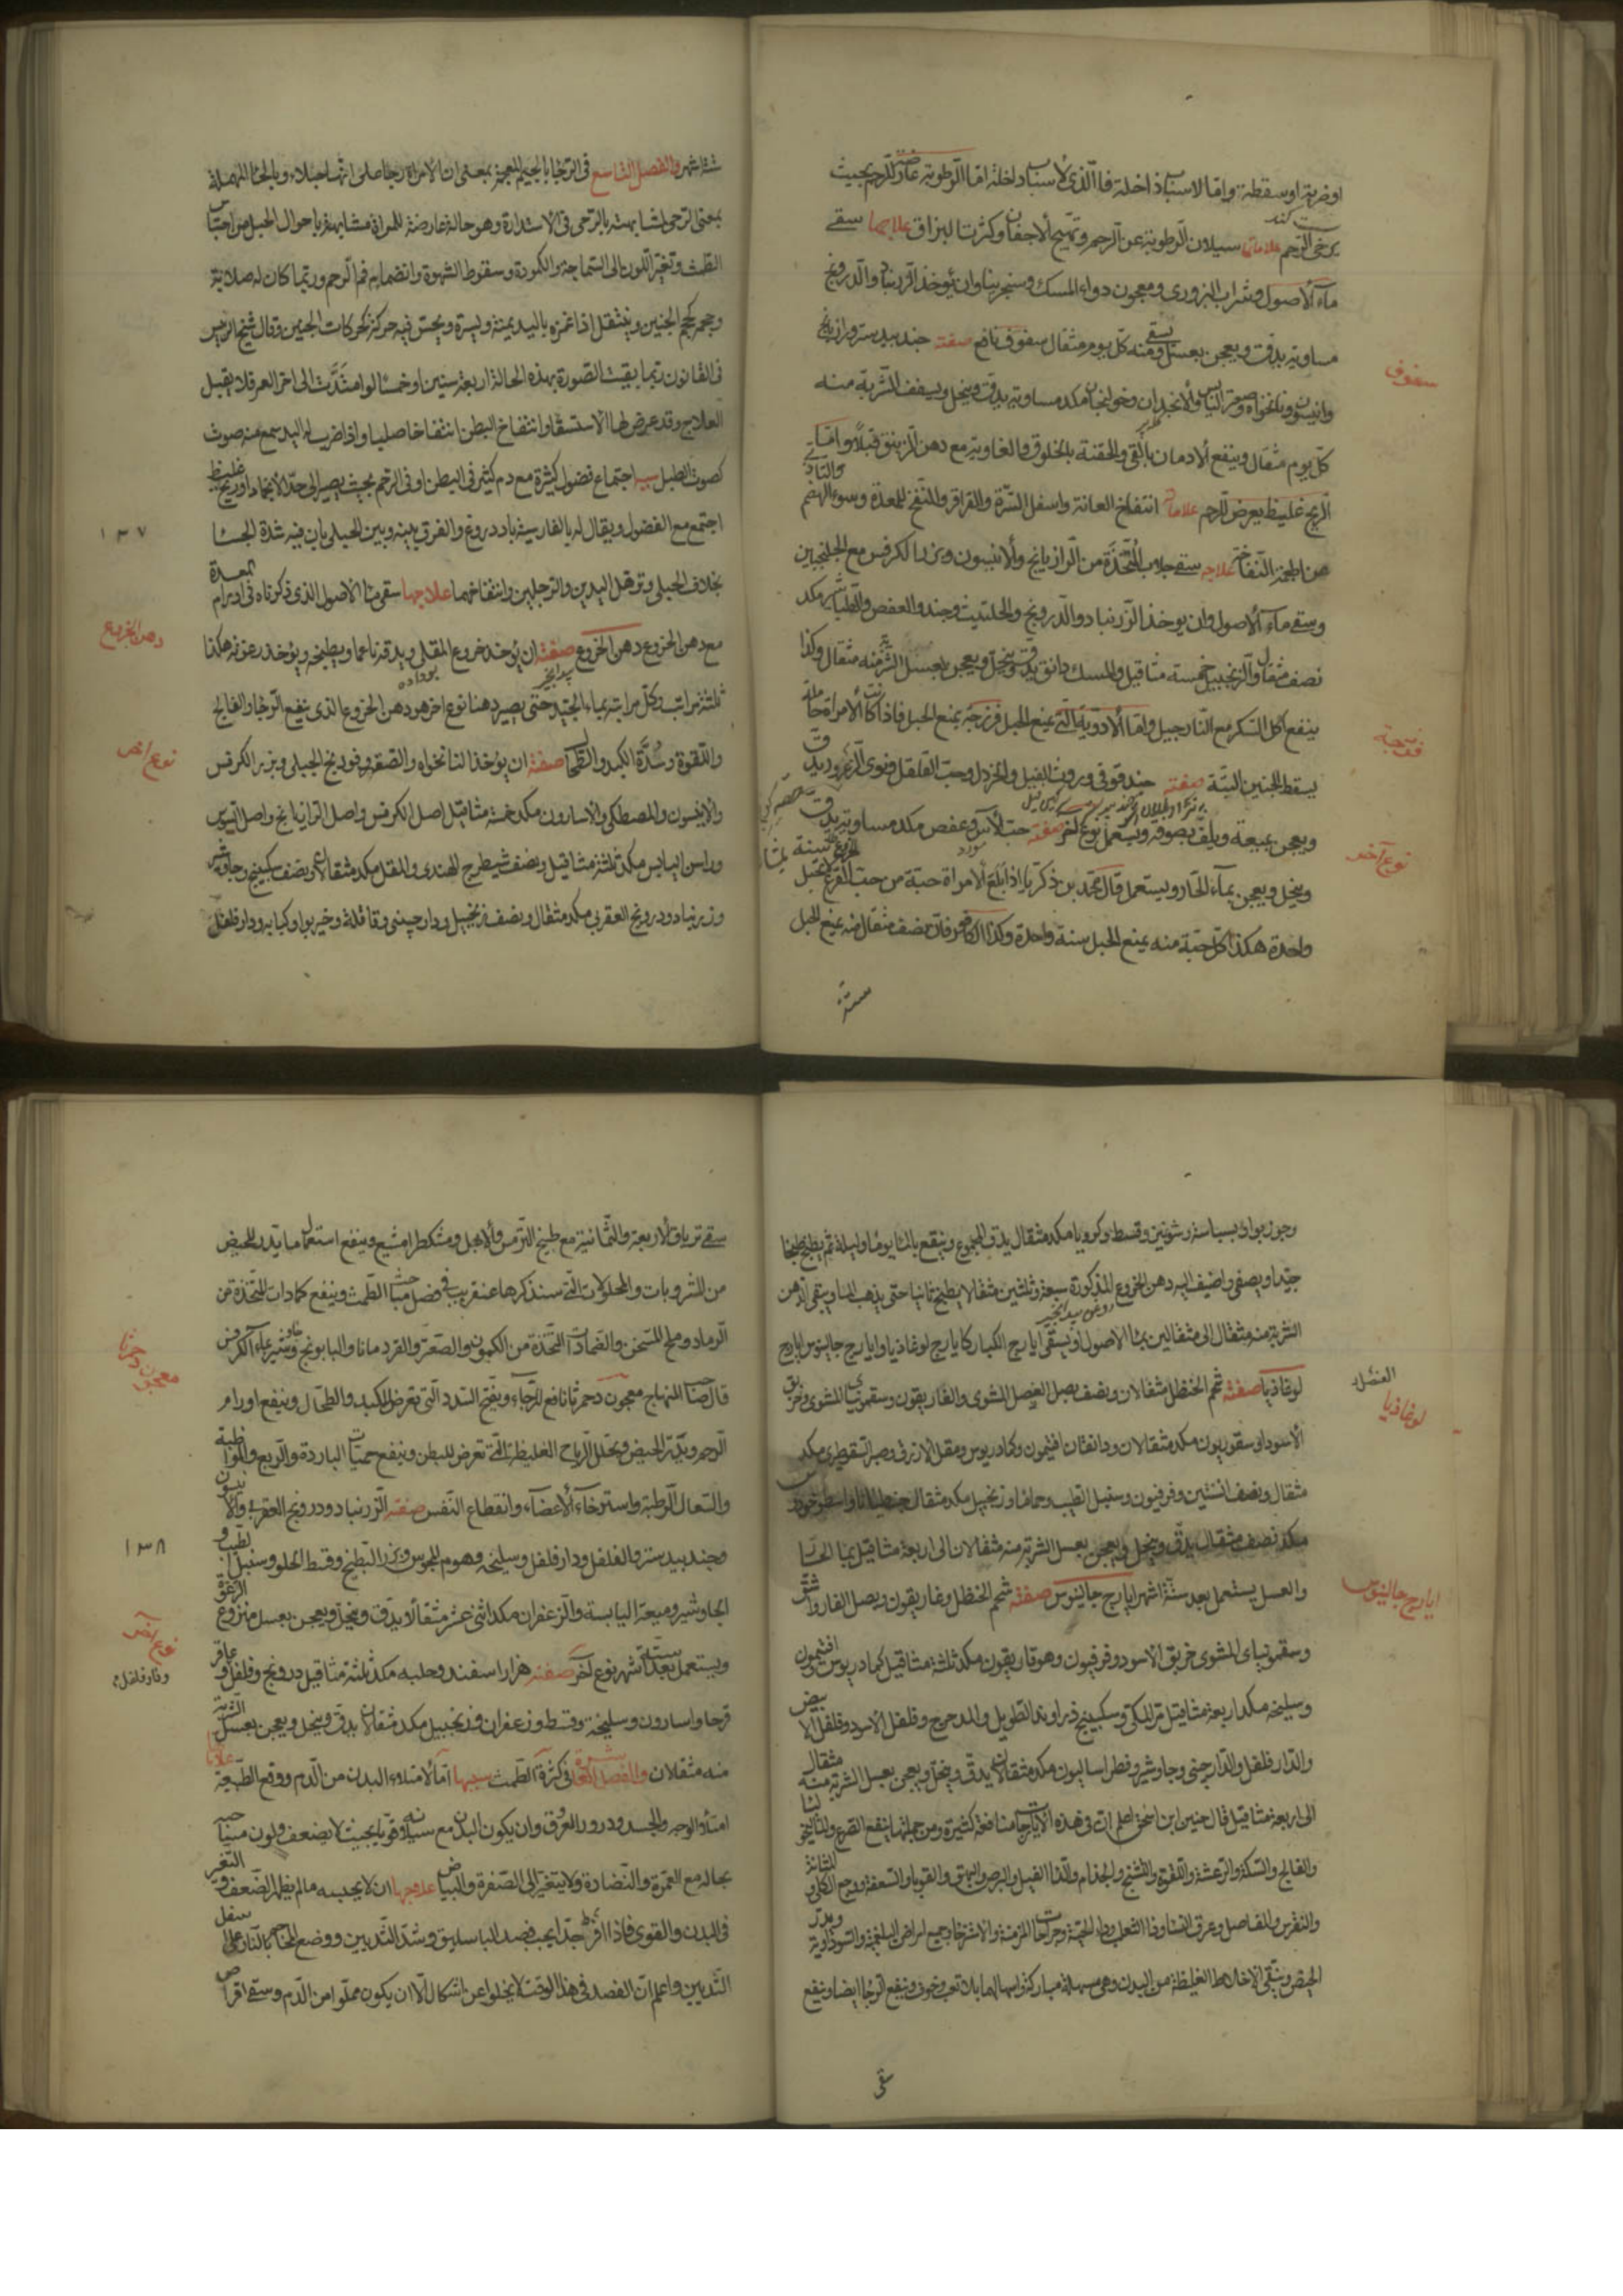 او ضربة او سقطة واما الاسباب داخلة فالذى لأسباب داخلة اما الرطوبة عارضة للرحم بحيث
يرخى الرحم علاماتها سيلان الرطوبة عن الرحم وتهيج الأجفان وكثرت البزاق علاجها سقى
ماء الأصول وشراب البزورى ومعجون دواء المسك وسنجرينا وان يؤخذ زرنباد والدرونج
مساوية يدق ويعجن بعسل ويسقى منه كل يوم مثقال سفوف نافع صفته جندبيدستر ورازيانج
وانيسون ونانخواه وصعتر اليابس والانجدان وخولنجان مكد مساوية يدق وينخل ويسفف الشربة منه
كل يوم مثقال وينفع ألادمان بالقى والحقنة بالخلوق والغاوية مع دهن الزنبق قبلاً واما
الريح غليظ يعرض للرحم علاماته انتفاخ العانة واسفل السرة والقراقر والنفخ للمعدة وسوء الهضم
من اطعمة النفاخة علاجه سقى جلاب المتخذة من الرازيانج وألانيسون وبزر الكرفس مع الجلنجبين
وسقى ماء ألاصول وان يوخذ الزرنباد والدرونج والحلتيت وجند والعفص والطباشير مكد
نصف مثقال والزنجبيل خمسة مثاقيل والمسك دانق يدق وينخل ويعجن بعسل الشربة منه مثقال وكذا
ينفع اكل السكر مع النارجيل واما ألادوية التى يمنع الحبل فرزجة يمنع الحبل فاذا كانت ألامراة حاملة
يسقط الجنين البتة صفته حندقوقى وروث الفيل والخردل وحب القلقل ونوى الزعرور يدق
ويعجن بميعة ويلف بصوفة ويستعمل نوع آخر صفته حب الآس وعفص مكد مساوية يدق
وينخل ويعجن بماء الحار ويستعمل قال محمد بن ذكريا اذا بلع ألامراة حبة من حب الخروع لا تحبل سنة
واحدة هكذا كل حبة منه يمنع الحبل سنة واحدة وكذا الكافور فان نصف مثقال منه يمنع الحبل
ستة
سفوف
فرزجة
نوع آخر
ستة اشهر والفصل التاسع فى الرجا بالجيم المعجمة بمعنى ان الامراة رجا صلى انها حبلاء وبالحاء المهملة
بمعنى الرحى لمشابهته بالرحى فى الاستدارة وهو حالة عارضة للمراة مشابهة باحوال الحبل من احتباس
الطمث وتغير اللون الى السماجة والكمودة وسقوط الشهوة وانضمام فم الرحم وربما كان له صلابة
وحجم كحجم الجنين وينتقل اذا غمزه باليد يمنة ويسرة ويحس فيه حركة كحركات الجنين وقال شيخ الرئيس
فى القانون ربما بقيت الصورة بهذه الحالة اربعة سنين او خمسا او امتدت الى اخر العمر فلا يقبل
العلاج وقد عرض لها الاستسقا وانتفاخ البطن انتفاخا صلبا واذا ضرب له اليد سمع منه صوت
كصوت الطبل سببها اجتماع فضول كثيرة مع دم كثير فى البطن او فى الرحم بحيث يصير الى حد الانجماد او ريح غليظ
اجتمع مع الفضول ويقال له بالفارسية باد دروغ والفرق بينه وبين الحبلى بان فيه شدة الجسا
بخلاف الحبلى وترهل اليدين والرجلين وانتفاخهما علاجها سقى ماء الاصول الذى ذكرناه فى اورام المعدة
مع دهن الخروع دهن الخروع صفته ان يؤخذ خروع المقلى ويدقه ناعما ويطبخه ويوخذ رغوته هكذا
ثلثة مراتب وكل مراتبه بماء الجديد حتى يصير دهنا نوع اخر هو دهن الخروع الذى ينفع الرجا والفالج
واللقوة وسدة الكبد والطحال صفته ان يؤخذ لنانخواه والصعتر وفودنج الجبلى وبزر الكرفس
والانيسون والمصطكى والاسارون مكد خمسة مثاقيل اصل الكرفس واصل الرازيانج واصل السوس
وراسن اليابس مكد ثلثة مثاقيل ونصف شيطرج الهندى والمقل مكد مثقالان ونصف سكبينج وجاوشير
وزرنباد ودرونج العقربى مكد مثقال ونصف زنجبيل ودارچينى وقاقلة وخيربوا وكبابه ودارفلفل
١٣٧
دهن الخروع
نوع اخر
وجوز بوا وبسباسة وشونيز وقسط وكرويا مكد مثقال يدق المجموع وينقع بالماء يوما وليلة ثم يطبخ طبخا
جيدا ويصفى واضيف اليه دهن الخروع المذكورة سبعة وثلثين مثقالا يطبخ ثانيا حتى يذهب الماء ويبقى الدهن
الشربة منه مثقال الى مثقالين بماء الاصول او يسقى ايارج الكبار كايارج لوغاذيا وايارج جالينوس ايارج
لوغاذيا صفته شحم الحنظل مثقالان ونصف بصل العنصل المشوى والغاريقون وسقمونياى المشوى وخربق
الأسود اسقوريون مكد مثقالان ودانقان افتيمون وكمادريوس ومقل الازرق وصبر السقوطرى مكد
مثقال ونصف افسنتين وفرفيون وسنبل الطيب وحماما وزنجبيل مكد مثقال جنطيانا واسطوخودوس
مكد نصف مثقال يدق وينخل ويعجن بعسل الشربة منه مثقالان الى اربعة مثاقيل بماء الحشا
والعسل يستعمل بعد ستة اشهر ايارج جالينوس صفته شحم الحنظل وغاريقون وبصل الفار واشق
وسقمونياى المشوى خربق الاسود وفرفيون وهوفاريقون مكد ثلثة مثاقيل كمادريوس افتيمون
وسليخه مكد اربعة مثاقيل مر المكى وسكبينج وزراوند الطويل والمدحرج وفلفل الاسود وفلفل الابيض
والدارفلفل والدارچينى وجاوشير وفطراساليون مكد مثقالان يدق وينخل ويعجن بعسل الشربة منه مثقال
الى اربعة مثاقيل قال حنين ابن اسحق اعلم ان فى هذه الايارجات منافعة كثيرة ومن جملتها ينفع الصرع والماليخوليا
والفالج والسكتة والرعشة واللقوة والتشنج والجذام والداء الفيل والبرص والبهق والقوبا والسعفة ووجع الكلى والمثانة
والنقرس والمفاصل وعرق النسا وداء الثعلب وداء الحية وجراحات المزمنة والاسترخا وجميع امراض البلغمية والسوداوية ويدر
الحيض وينقى الاخلاط الغليظة من البدن وهى مسهلة مباركة واسهالها بلا تعب وخوف وينفع الرجا ايضا وينفع
سقى
لوغاذيا
ايارج جالينوس
سقى ترياق الأربعة والثمانية مع طبيخ الترمس وألابهل ومشكطرامشيع وينفع استعمال ما يدر الحيض
من المشروبات والمحمولات التى سنذكرها عنقريب فى فصل احتباس الطمث وينفع كمادات المتخذة من
الرماد وملح المسخن والضمادات المتخذة من الكمون والصعتر والقردمانا والبابونج وجاوشير بماء الكرفس
قال صاحب المنهاج معجون دحمرثا نافع للرجاء ويفتح السدد التى تعرض للكبد والطحال وينفع اورام
الرحم ويدر الحيض ويحلل الرياح الغليظة التى تعرض للبطن وينفع حميات الباردة والربع والرطوبة
والسعال الرطبة واسترخاء الأعضاء وانقطاع النفس صفته الزرنباد ودرونج العقربى والانيسون
وجندبيدستر والفلفل ودارفلفل وسليخه وهوم المجوس وبزر البطيخ وقسط الحلو وسنبل الطيب و
الجاوشير وميعة اليابسة والزعفران مكد اثنى عشر مثقالا يدق وينخل ويعجن بعسل منزوع الرغوة
ويستعمل بعد ستة اشهر نوع آخر صفته هزاراسفند وحلبه مكد ثلثة مثاقيل درونج وفلفل وعاقر
قرحا واسارون وسليخة وقسط وزعفران وزنجبيل مكد مثقالان يدق وينخل ويعجن بعسل الشربة
منه مثقلان والفصل العاشر فى كثرة الطمث سببها اما لأمتلاء البدن من الدم ووقع الطبيعة علاماتها
امتلاء الوجه والجسد ودرور العروق وان يكون البدن مع سيلانه قويا بحيث لا يضعف ولون صاحبه
بحاله مع الحمرة والنضارة ولا يتغير الى الصفرة والبياض علاجها ان لا يحبسه مالم يظهر الضعف والتغير
فى البدن والقوى فاذا افرط جدا يجب فصد الباسليق وشد الثديين ووضع المحاجم بالنار على اسفل
الثديين واعلم ان الفصد فى هذا الوقت لا يخلوا عن اشكال الا ان يكون مملوا من الدم وسقى اقراص
معجون دحمرثا
١٣٨
نوع اخر
ودارفلفل